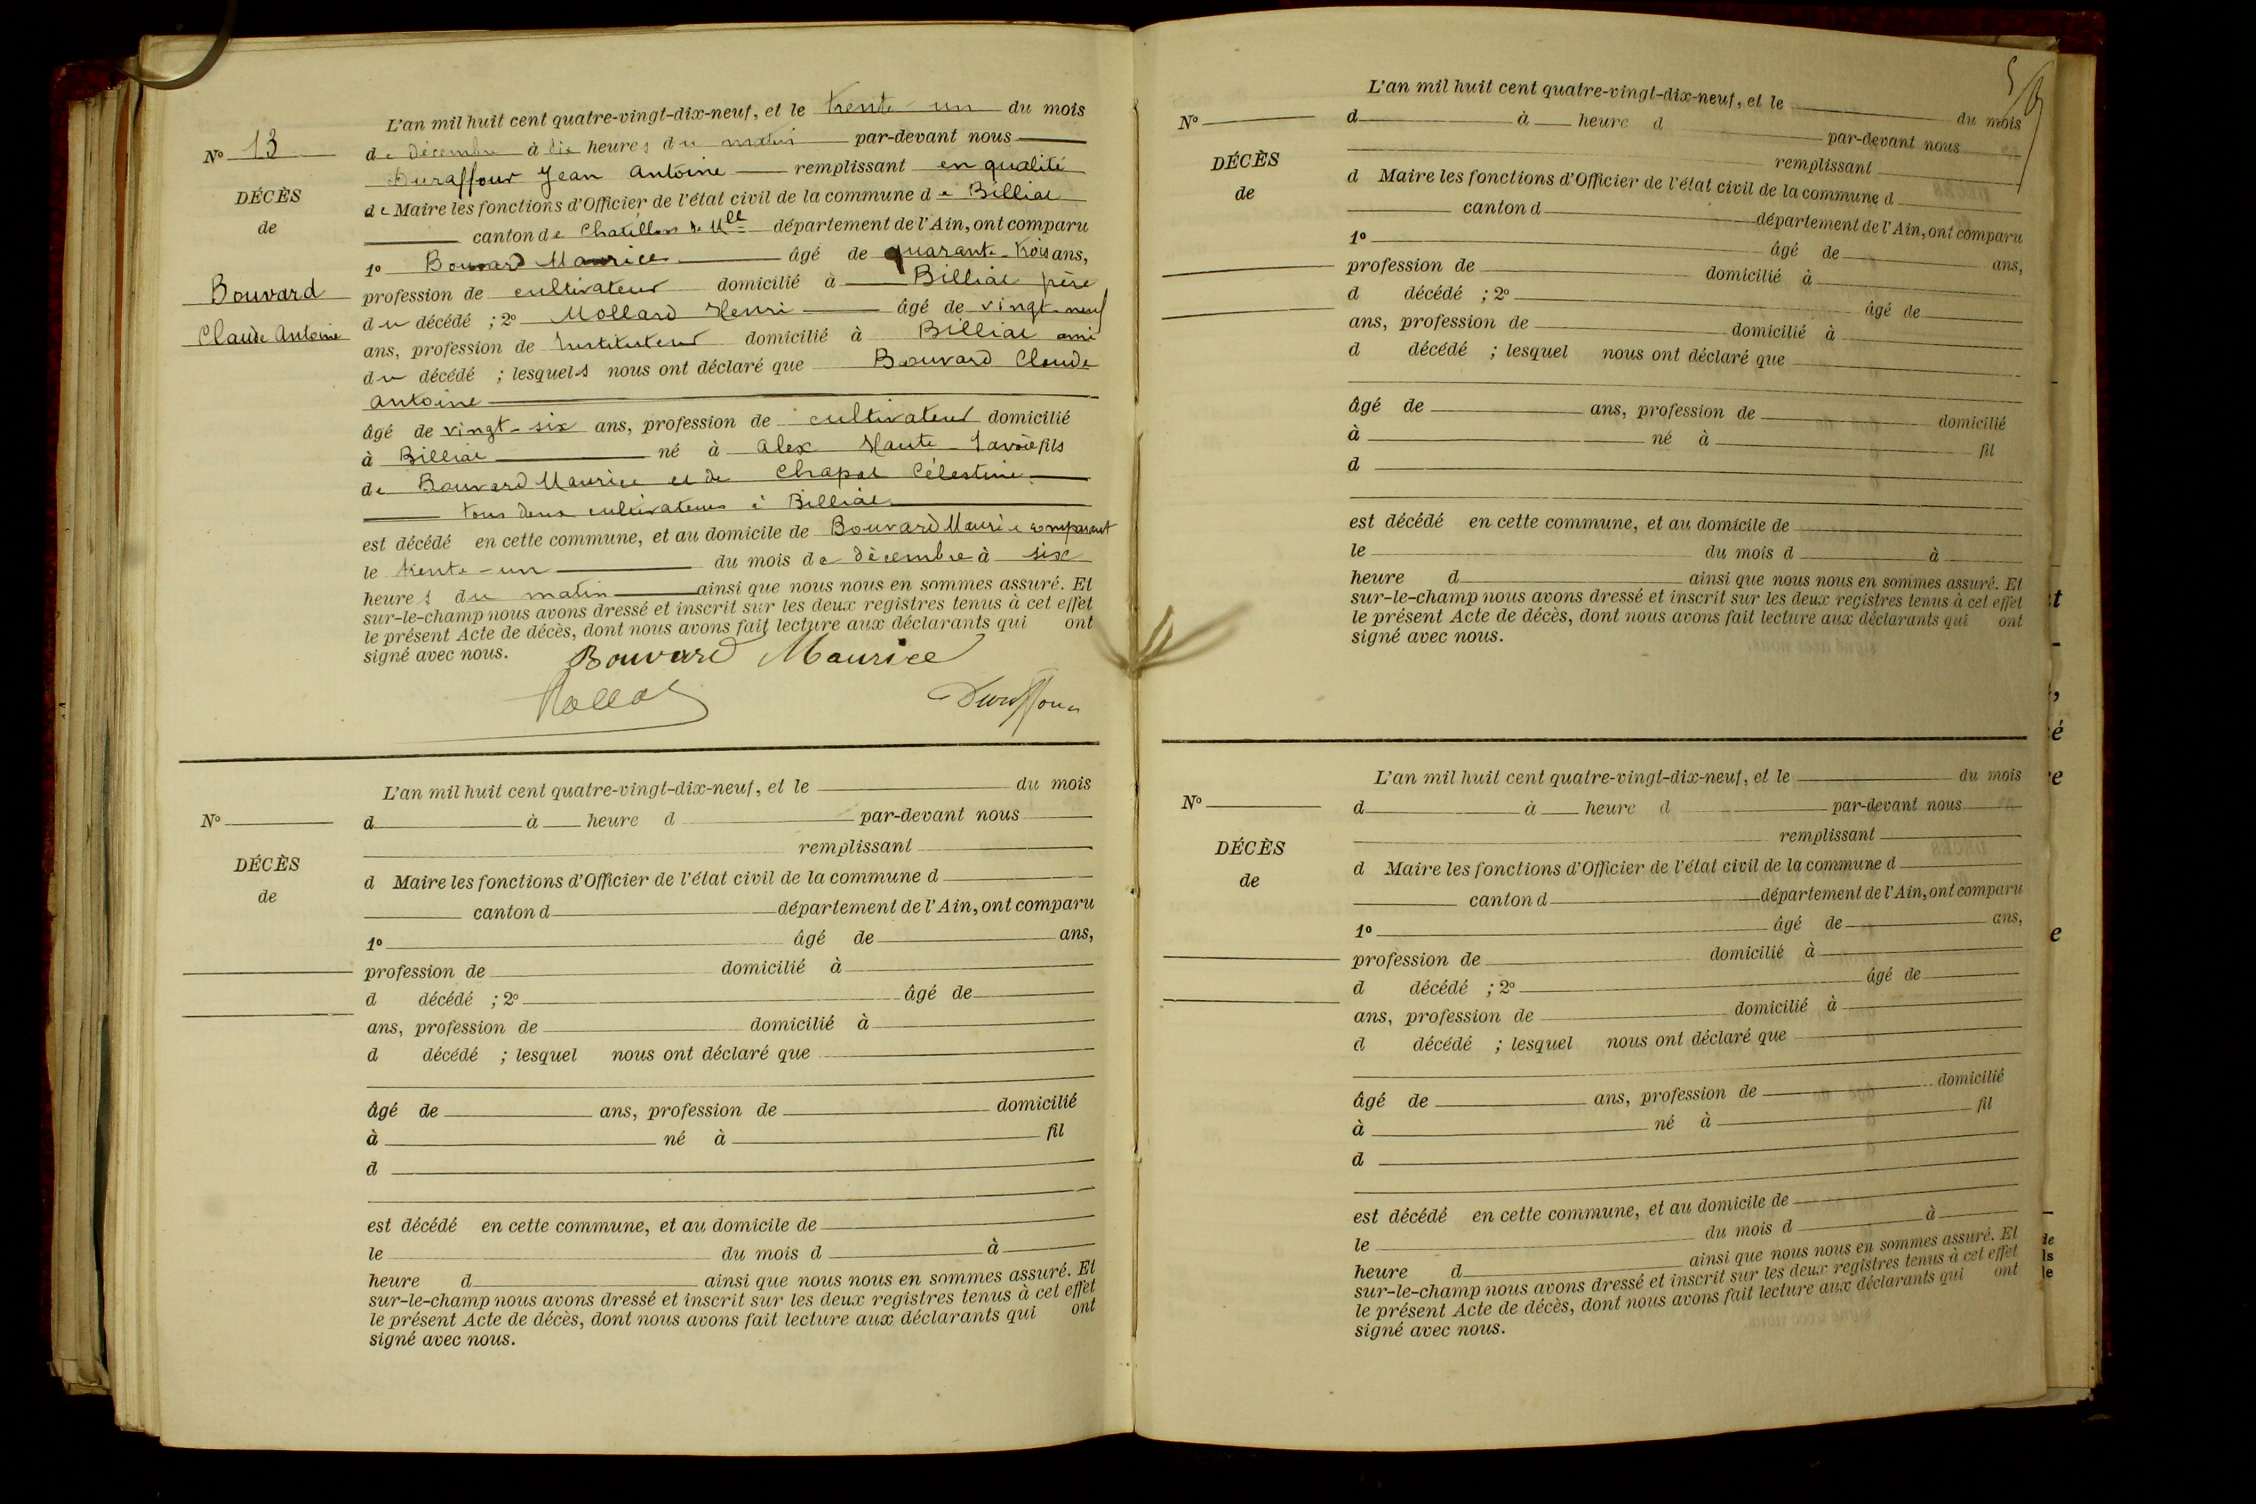 L'an mil huit cent quatre-vingt-dix-neuf, et le trente-un du mois
N° 13
de décembre à dix heures du matin par-devant nous
Duraffour Jean Antoine remplissant en qualité
DÉCÈS
de
de Maire les fonctions d'Officier de l'état civil de la commune de Billiat
canton de Chatillon de Mlle département de l'Ain, ont comparu
1° Bouvard Maurice âgé de quarante-trois ans,
Bouvard
Claude Antoine
profession de cultivateur domicilié à Billiat père
du décédé ; 2° Mollard Henri âgé de vingt-neuf
ans, profession de Instituteur domicilié à Billiat ami
du décédé ; lesquels nous ont déclaré que Bouvard Claude
Antoine
âgé de vingt-six ans, profession de cultivateur domicilié
à Billiat né à Alex Haute-Savoie fils
de Bouvard Maurice et de Chapat Célestine
tous deux cultivateurs à Billiat
est décédé en cette commune, et au domicile de Bouvard Maurice comparant
le trente-un du mois de décembre à six
heures du matin ainsi que nous nous en sommes assuré. Et
sur-le-champ nous avons dressé et inscrit sur les deux registres tenus à cet effet
le présent Acte de décès, dont nous avons fait lecture aux déclarants qui ont
signé avec nous. Bouvard Maurice
Mollard Duraffour
L'an mil huit cent quatre-vingt-dix-neuf, et le du mois
N°
d à heure d par-devant nous
remplissant
DÉCÈS
de
d Maire les fonctions d'Officier de l'état civil de la commune d
canton d département de l'Ain, ont comparu
1° âgé de ans,
profession de domicilié à
d décédé ; 2° âgé de
ans, profession de domicilié à
d décédé ; lesquel nous ont déclaré que
âgé de ans, profession de domicilié
à né à fil
d
est décédé en cette commune, et au domicile de
le du mois d à
heure d ainsi que nous nous en sommes assuré. Et
sur-le-champ nous avons dressé et inscrit sur les deux registres tenus à cet effet
le présent Acte de décès, dont nous avons fait lecture aux déclarants qui ont
signé avec nous.
L'an mil huit cent quatre-vingt-dix-neuf, et le du mois
N°
d à heure d par-devant nous
remplissant
DÉCÈS
de
d Maire les fonctions d'Officier de l'état civil de la commune d
canton d département de l'Ain, ont comparu
1° âgé de ans,
profession de domicilié à
d décédé ; 2° âgé de
ans, profession de domicilié à
d décédé ; lesquel nous ont déclaré que
âgé de ans, profession de domicilié
à né à fil
d
est décédé en cette commune, et au domicile de
le du mois d à
heure d ainsi que nous nous en sommes assuré. Et
sur-le-champ nous avons dressé et inscrit sur les deux registres tenus à cet effet
le présent Acte de décès, dont nous avons fait lecture aux déclarants qui ont
signé avec nous.
L'an mil huit cent quatre-vingt-dix-neuf, et le du mois
N°
d à heure d par-devant nous
remplissant
DÉCÈS
de
d Maire les fonctions d'Officier de l'état civil de la commune d
canton d département de l'Ain, ont comparu
1° âgé de ans,
profession de domicilié à
d décédé ; 2° âgé de
ans, profession de domicilié à
d décédé ; lesquel nous ont déclaré que
âgé de ans, profession de domicilié
à né à fil
d
est décédé en cette commune, et au domicile de
le du mois d à
heure d ainsi que nous nous en sommes assuré. Et
sur-le-champ nous avons dressé et inscrit sur les deux registres tenus à cet effet
le présent Acte de décès, dont nous avons fait lecture aux déclarants qui ont
signé avec nous.